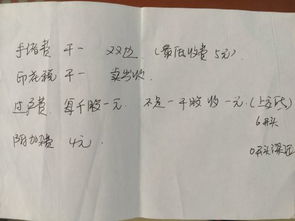 手续费 千一 双边 (最低收费 5元)
印花税 千一 卖出收
过户费 每千股一元 不足一千股收一元 (上交所)
6开头
附加费 4元
0开头深证